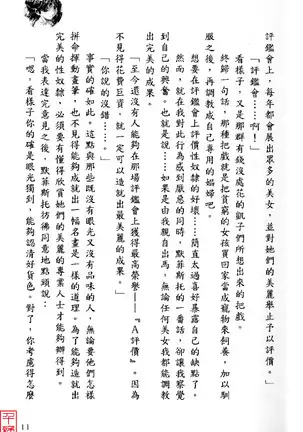 評鑑會上，每年都會展出眾多的美女，並對她們的美麗舉止予以評價。
「評鑑會……啊！」
看樣子，又是那群有錢沒處花的凱子們所想出來的把戲。
終歸一句話，那種把戲就是把貧窮的女孩買回家當成寵物來飼養，加以馴
服之後，再調教成自己專用的娼婦吧。
想要在評鑑會上評價性奴隸的好壞……簡直太過喜好暴露自己的缺點了。
然而，就在我對此行為感到厭惡的同時，默菲斯托的一番話，卻讓我察覺
到自己的興奮。也就是說……如果是由我親自出馬，無論任何美女我都能調教
出完美的成果。
「至今還沒有人能夠在那場評鑑會上獲得最高榮譽─『A評價』。因為
不見得花費巨資，就一定可以造就出最美麗的成果。」
「你說的沒錯……。」
事實的確如此。這點與那些既沒有眼光又沒有品味的人，無論要他們怎樣
拼命揮動畫筆，也不見得能夠成就出一幅名畫是一樣的道理。為了能夠造就出
完美的性奴隸，必須要有懂得欣賞她們的美麗的專業人士才能夠辦得到。
當我表達完意見之後，默菲斯托彷彿同意地點頭說：
「嗯。看樣子你的確是眼光獨到，能夠認清好貨色。對了，你考慮得怎麼
11